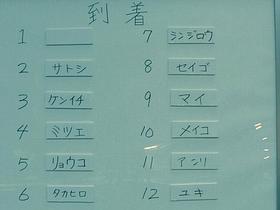 到着
1
2 サトシ
3 ケンイチ
4 ミツエ
5 リョウコ
6 タカヒロ
7 シンジロウ
8 セイゴ
9 マイ
10 メイコ
11 アンリ
12 ユキ